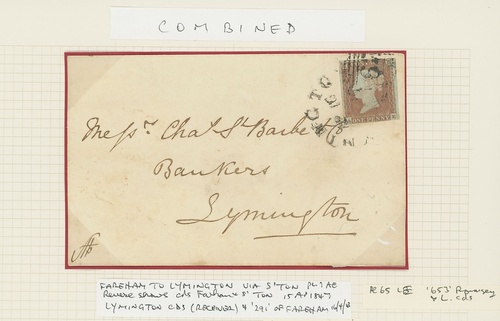 COMBINED
Messrs. Chas. St Barbe & Co
Bankers
Lymington
ONE PENNY
FAREHAM TO LYMINGTON VIA S'TON PL
Reverse shows cds Fareham & S'TON 15 AP 1847
LYMINGTON CDS (RECEIVER) & '291' OF FAREHAM
'653' Romsey
& L. cds